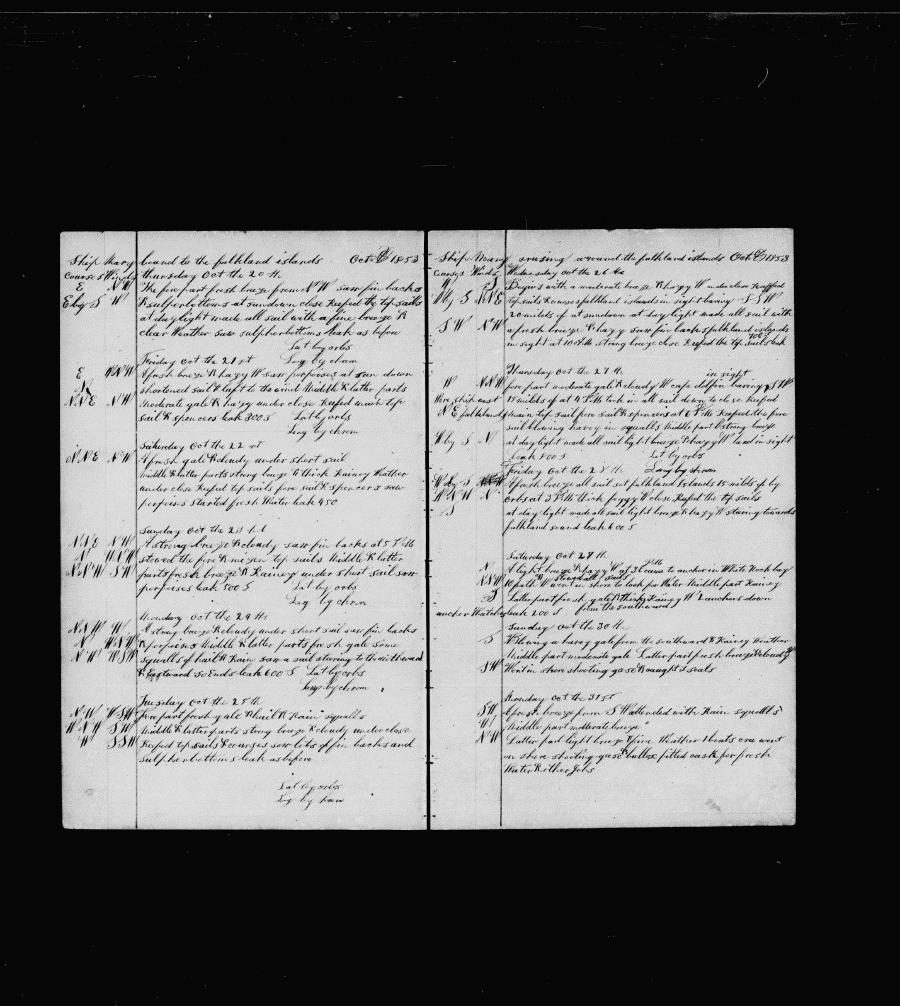 Ship Mary bound to the falkland islands Oct 1853
Courses Winds thursday Oct the 20 th
E N W The fore part fresh breeze from N W saw fin backs
E by S W & sulpherbottoms at sundown close Reefed the top sails
at day light made all sail with a fine breeze &
clear Weather saw sulpherbottoms leak as before
Lat by obs
Friday Oct the 21 st Long by chron
E W N W A fresh breeze & hazy W saw porpoises at sun down
shortened sail & luft to the wind Middle & latter parts
N N E N W Moderate gale & hazy under close Reefed main top
sail & spencers leak 300 S Lat by obs
Long by chron
Saturday Oct the 22
N N E N W A fresh gale & cloudy under short sail
Middle & latter parts strong breeze & thick Rainey Weather
under close Reefed top sails fore sail & spencers saw
porpoises started fresh Water leak 450
Sunday Oct the 23
N N E N W A strong breeze & cloudy saw fin backs at 5 P M
N W N W stowed the fore & mizen top sails Middle & latter
N N W S W parts fresh breeze & Rainey under short sail saw
porpoises leak 500 S Lat by obs
Long by chron
Monday Oct the 24 th
N N W W A strong breeze & cloudy under short sail saw fin backs
N W N W & porpoises Middle & latter parts fresh gale some
N W W S W squalls of hail & Rain saw a sail steering to the
& Eastward So Ends leak 600 S Lat by obs
Long by chron
Tuesday Oct the 25 th
N W W S W fore part fresh gale & hail & Rain squalls
S W Middle & latter parts strong breeze & cloudy under close
W S S W Reefed top sails & courses saw lots of fin backs and
sulpherbottoms leak as before
Lat by obs
Long by
Ship Mary crusing around the falkland islands Oct 1853
Courses Winds Wednesday Oct the 26 th
W S Begins with a moderate breeze & hazy W under close Reefed
W by S top sails & courses falkland islands in sight baring S S W
20 mild of at sundown at day light made all sail with
S W N W a fresh breeze & hazy saw fin backs falkland islands
in sight at 10 A M strong breeze close Reefed the top sails leak
Thursday Oct the 27 th in sight
W N N W fore part moderate gale & cloudy W cape dolfin baring
15 mild of at 4 P M took in all sail down to close Reefed
N E falkland main top sail fore sail & spencers at 6 P M Reefed the fore
sail blowing havey in squalls Middle part strong breeze
W by S N at day light made all sail light breeze & hazy W land in sight
leak 800 S Lat by obs
Friday Oct the 28 th Long by chron
W by S A fresh breeze all sail set falkland Islands 15 mild of by
W N W N obs at 3 P M thick foggy W close Reefed the top sails
S at day light made all sail light breeze & hazy W staring towards
falkland sound leak 600 S
Saturday Oct 29 th
N A light breeze & hazy W at 3 P M came to anchor in White Rock bay
N N W 10 fath W & stowed all sails went in shore to look for Water Middle part Rainey
S Latter part fresh gale & thick Rainey W 2 anchors down
anchor Watches leak 200 S from the southward
Sunday Oct the 30 th
S Blowing a havey gale from the southward & Rainey Weather
Middle part moderate gale Latter part fresh breeze & cloudy W
S W Went in shore shooting gese & caught 3 seals
Monday Oct the 31 st
S W A fresh breeze from S W attended with Rain squalls
W Middle part moderate breeze
N W Latter part light breeze & fine Weather 2 boats crue went
on shore shooting gese & bullox fitted cask for fresh
Water & other Jobs